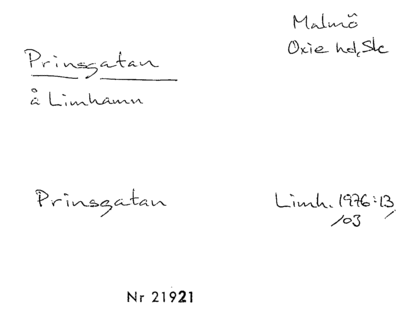 Malmö
Oxie hd, Sk
Prinsgatan
å Limhamn
Prinsgatan
Limh. 1976:13
/03
Nr 21921